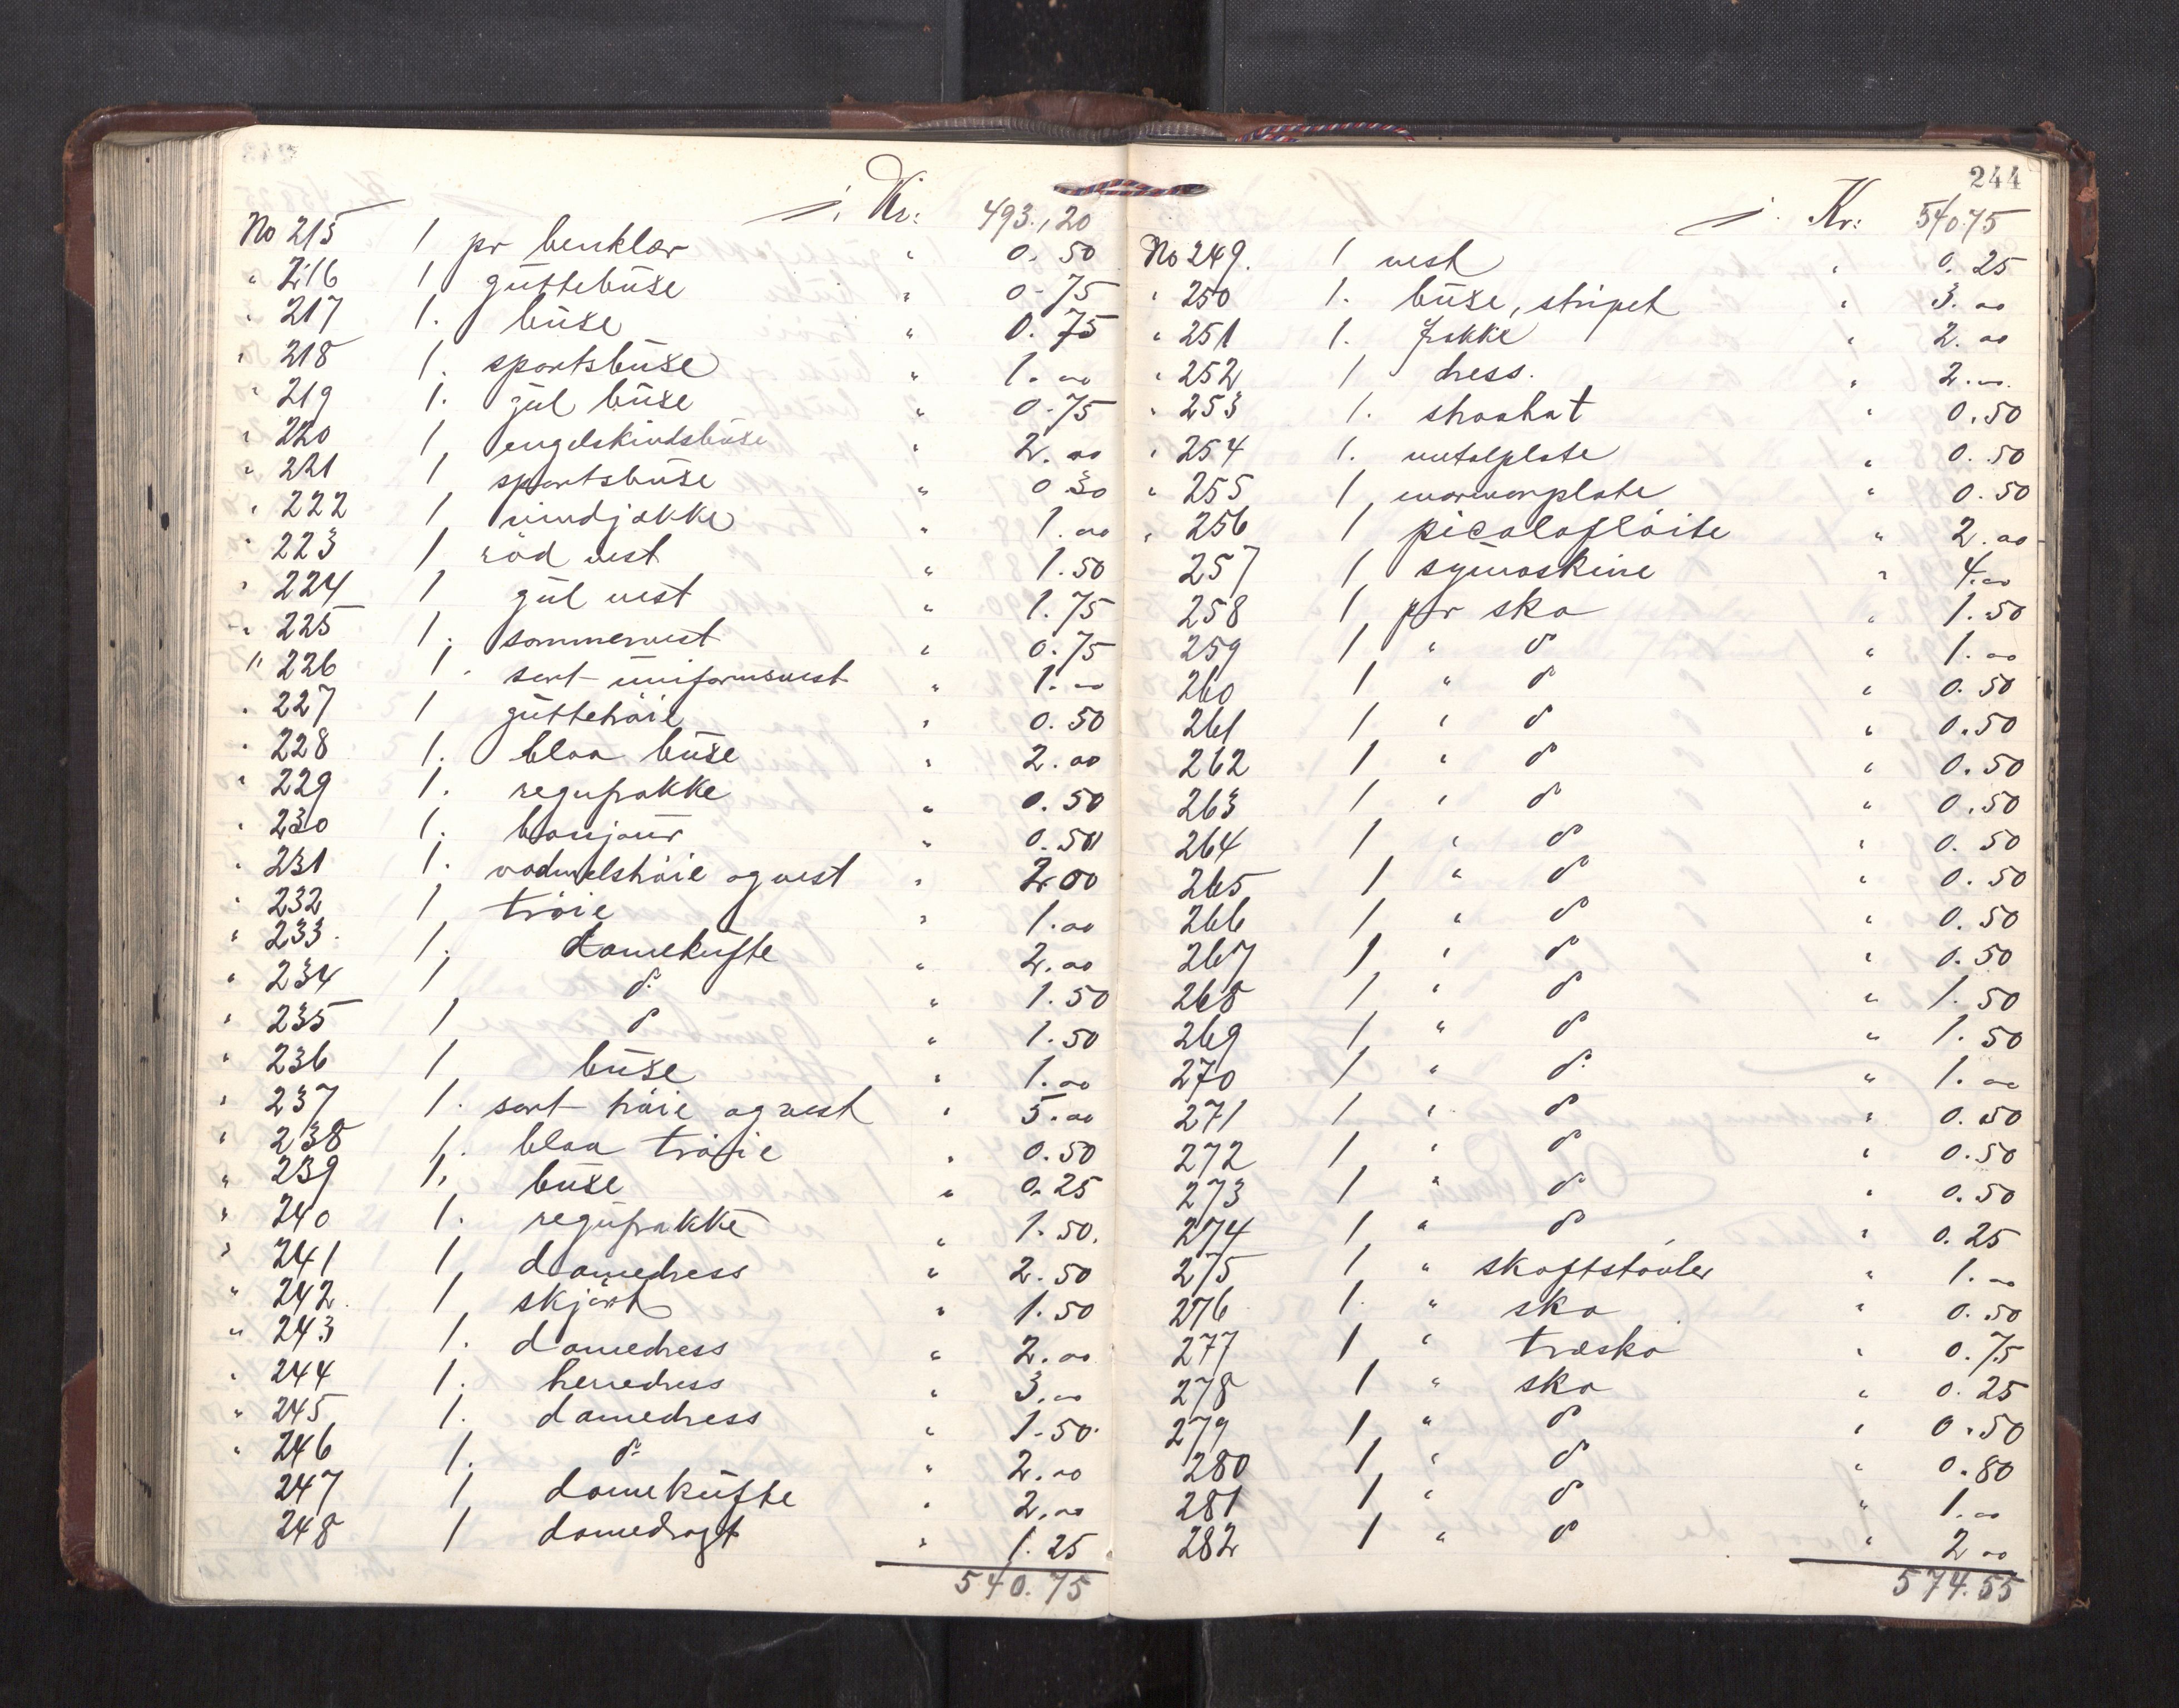 ÷ Kr: 493.,20
No 215 1 pr benklær " 0. 50
" 216 1 guttebuxe " 0-75
" 217 1. buxe " 0. 75
" 218 1. sportsbuxe " 1. 00
" 219 1. gul buxe " 0.75
" 220 1, engelskindsbuxe " 2. 00
" 221 1 sportsbuxe " 0 30
" 222 1, vindjakke " 1. 00
" 223 1, röd vest " 1.50
" 224 1 gul vest " 1.75
" 225 1. sommervest " 0.75
" 226 1. sort uniformsvest " 1. 00
" 227 1 guttetröie " 0. 50
" 228 1. blaa buxe " 2. 00
" 229 1. regnfrakke " 0. 50
" 230 1. bonjour " 0.50
" 231 1. vadmelströie og vest " 2.00
" 232 1, tröie " 1.00
" 233. 1. damekufte " 2.00
" 234 1 do " 1.50
" 235 1 do " 1.50
" 236 1, buxe " 1.00
" 237 1. sort tröie og vest " 5.00
" 238 1. blaa tröie " 0.50
" 239 1, buxe " 0.25
" 240 1. regnfrakke " 1.50.
" 241 1, damedress " 2.50
" 242. 1, skjört " 1.50
" 243 1. damedress " 2.00
" 244 1. herredress " 3.00
" 245 1. damedress " 1.50.
" 246 1. do " 2.00
247 1, damekufte " 2.00
248 1 damedragt " 1.25
540.75
244
÷ Kr: 540.75
No 249. 1 vest " 0. 25
" 250 1. buxe, stripet " 3. 00
" 251 1. frakke " 2. 00
" 252 1 dress. " 2.00.
" 253 1. straahat " 0.50
" 254 1. metalplate " 0. 50
" 255 1, marmorplate " 0.50
" 256 1 picolofløite " 2.00
257 1, symaskine " 4.00
258 1, par sko " 1.50
259 1 " do " 1.00
260 1 " do " 0.50
261 1, " do " 0.50
262 1 " do " 0.50
263 1, " do " 0.50
264 1, " do " 0.50
265 1 " do " 0.50
266 1, " do " 0.50
267 1, " do " 0.50
268 1, " do " 1.50
269 1, " do " 1.50
270 1, " do " 1.00
271 1, " do " 0.50
272 1, " do " 0.50
273 1 " do " 0.50
274 1, " do " 0.25
275 1 " skaftstøvler " 1.00
276 1. " sko " 0.50
277 1 " træsko " 0.75
278 1 " sko " 0.25
279 1, " do " 0.50
280 1, " do " 0.80
281 1, " do " 1.00
282 1 " do " 2 00
574.55